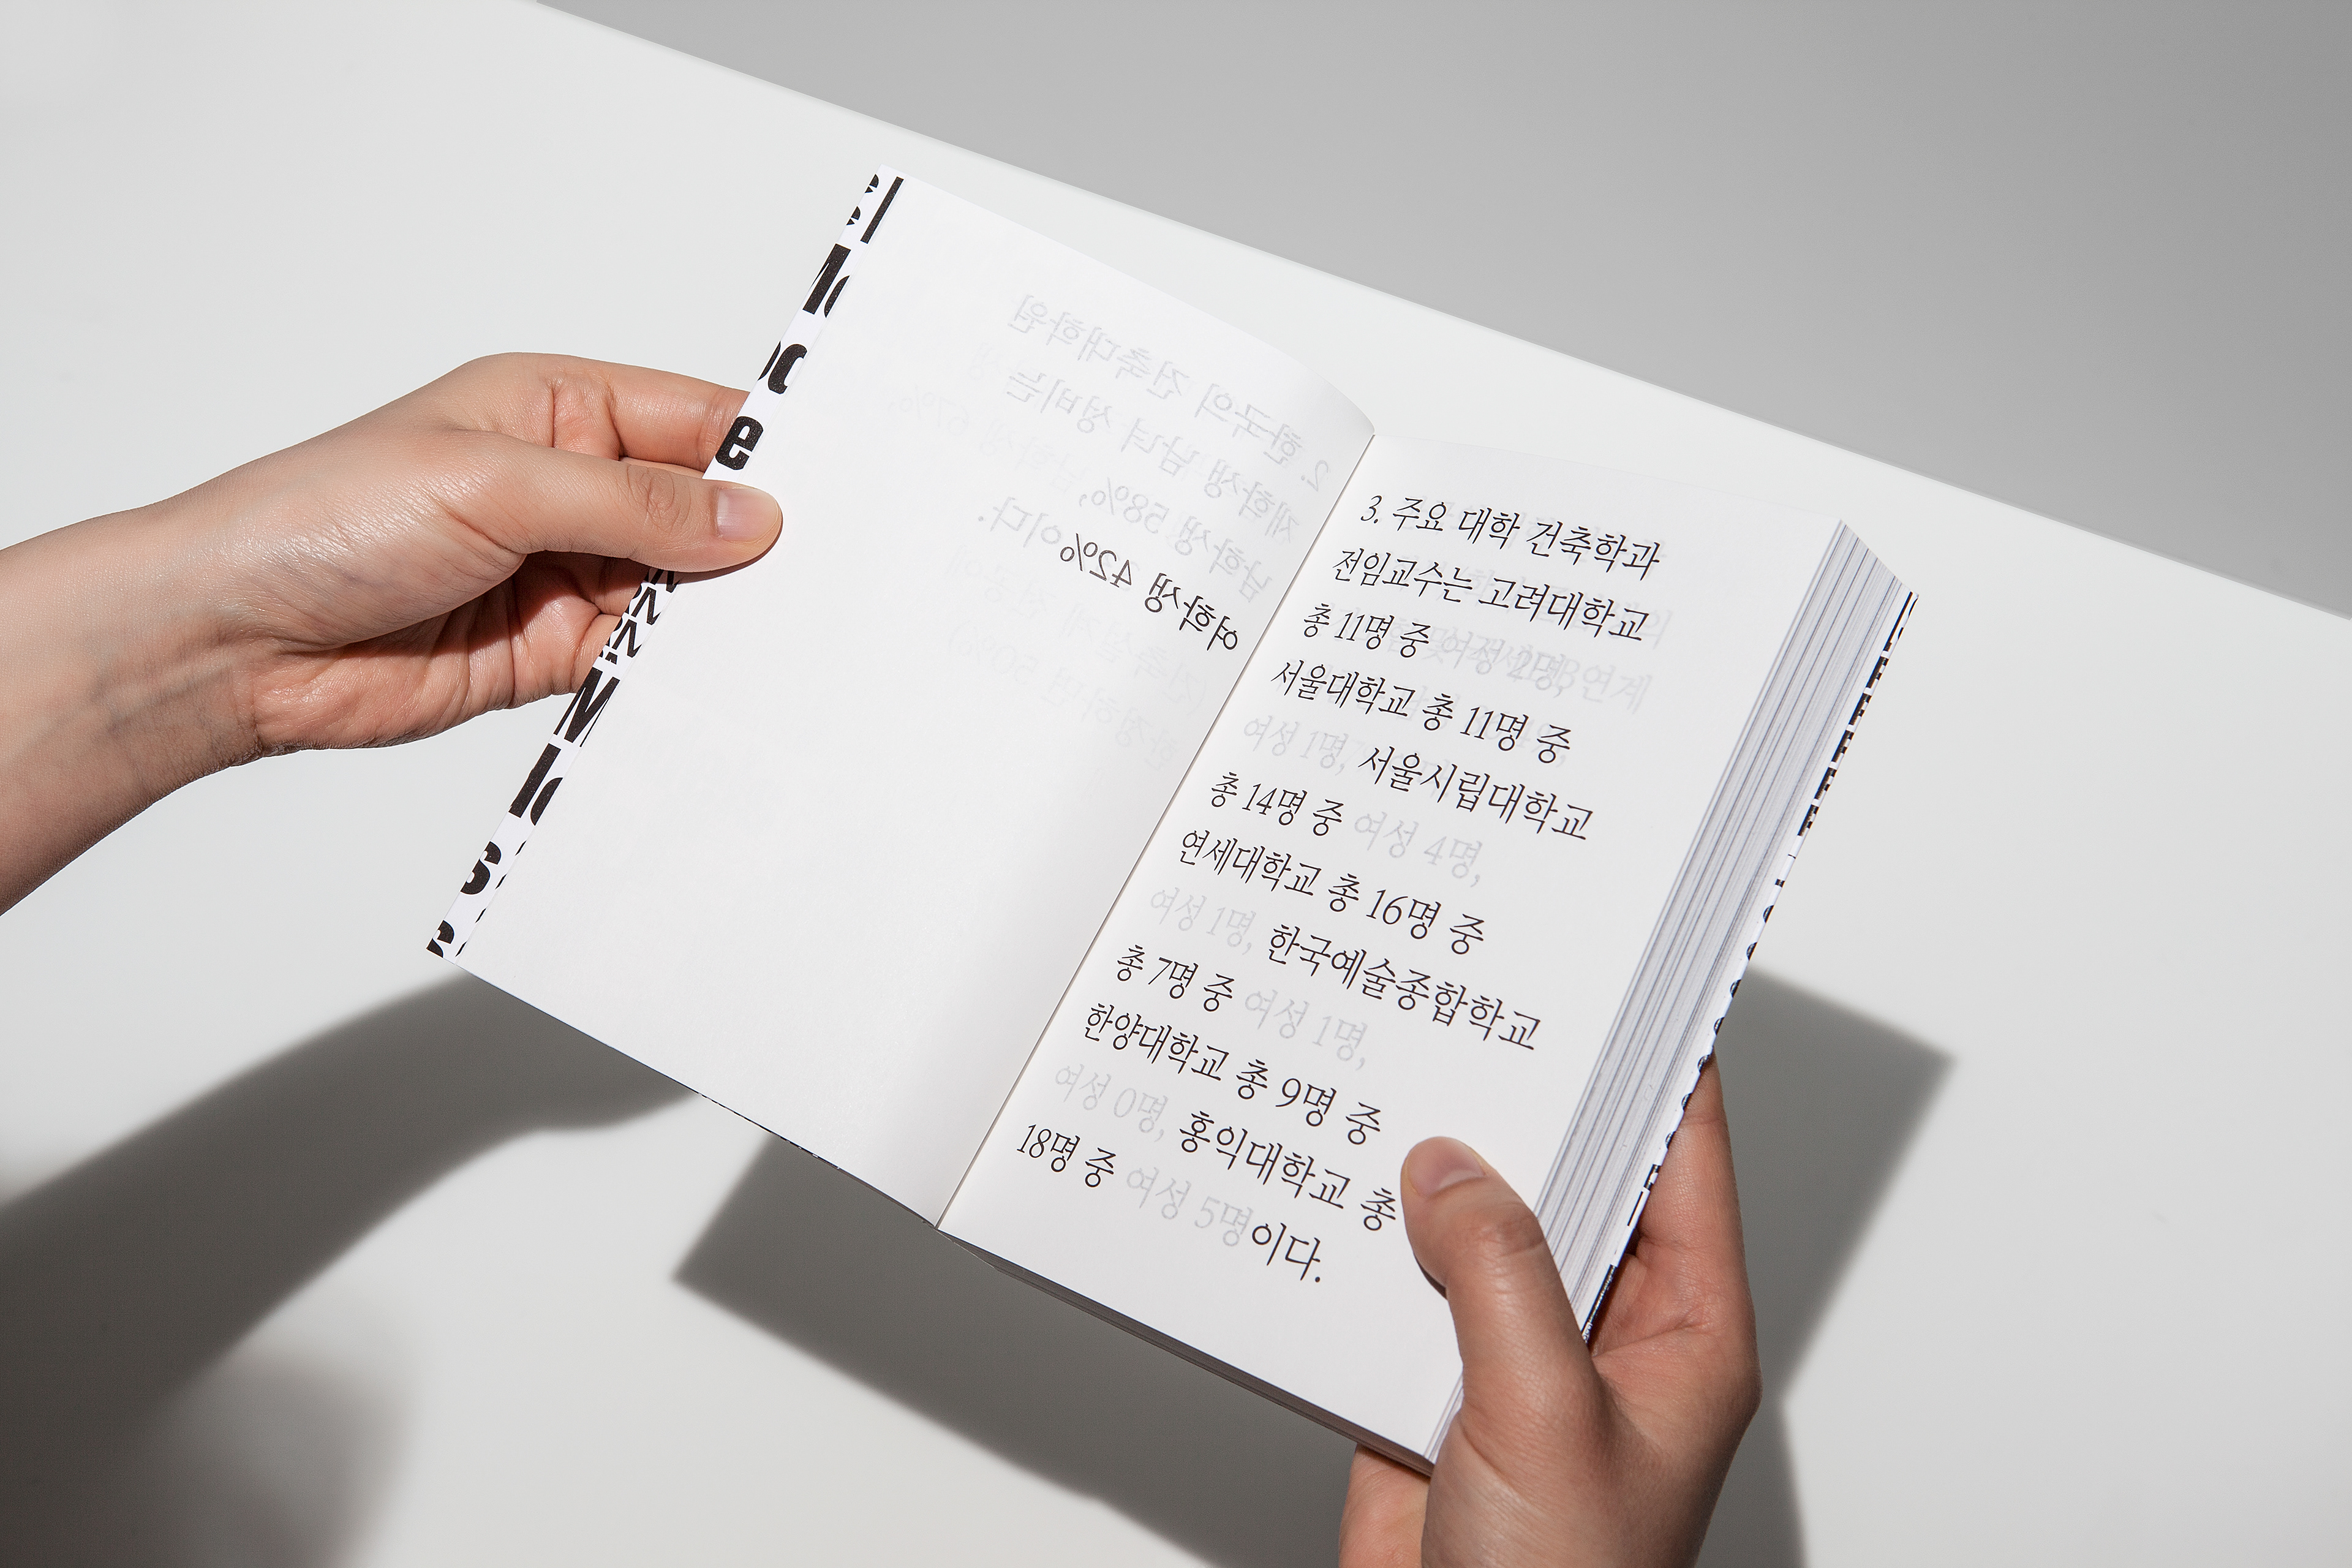 2. 한국의 건축대학원
재학생 남녀 성비는
남학생 58%,
여학생 42%이다.
3. 주요 대학 건축학과
전임교수는 고려대학교
총 11명 중 여성 2명,
서울대학교 총 11명 중
여성 1명, 서울시립대학교
총 14명 중 여성 4명,
연세대학교 총 16명 중
여성 1명, 한국예술종합학교
총 7명 중 여성 1명,
한양대학교 총 9명 중
여성 0명, 홍익대학교 총
18명 중 여성 5명이다.